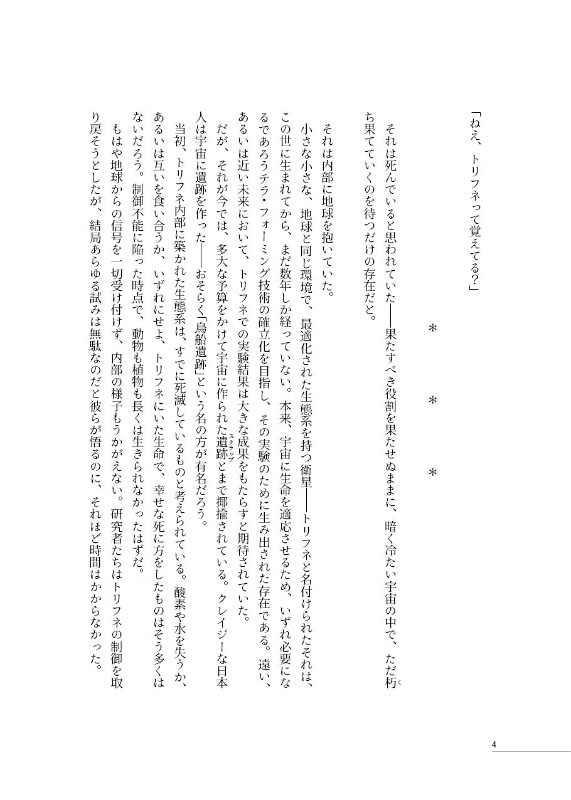 「ねえ、トリフネって覚えてる?」
＊　＊　＊
それは死んでいると思われていた――果たすべき役割を果たせぬままに、暗く冷たい宇宙の中で、ただ朽
く
ち果てていくのを待つだけの存在だと。
それは内部に地球を抱いていた。
小さな小さな、地球と同じ環境で、最適化された生態系を持つ衛星――トリフネと名付けられたそれは、
この世に生まれてから、まだ数年しか経っていない。本来、宇宙に生命を適応させるため、いずれ必要にな
るであろうテラ・フォーミング技術の確立化を目指し、その実験のために生み出された存在である。遠い、
あるいは近い未来において、トリフネでの実験結果は大きな成果をもたらすと期待されていた。
だが、それが今では、多大な予算をかけて宇宙に作られた遺跡とまで揶揄されている。クレイジーな日本
スクラップ
人は宇宙に遺跡を作った――おそらく「鳥船遺跡」という名の方が有名だろう。
当初、トリフネ内部に築かれた生態系は、すでに死滅しているものと考えられている。酸素や水を失うか、
あるいは互いを食い合うか、いずれにせよ、トリフネにいた生命で、幸せな死に方をしたものはそう多くは
ないだろう。制御不能に陥った時点で、動物も植物も長くは生きられなかったはずだ。
もはや地球からの信号を一切受け付けず、内部の様子もうかがえない。研究者たちはトリフネの制御を取
り戻そうとしたが、結局あらゆる試みは無駄なのだと彼らが悟るのに、それほど時間はかからなかった。
4